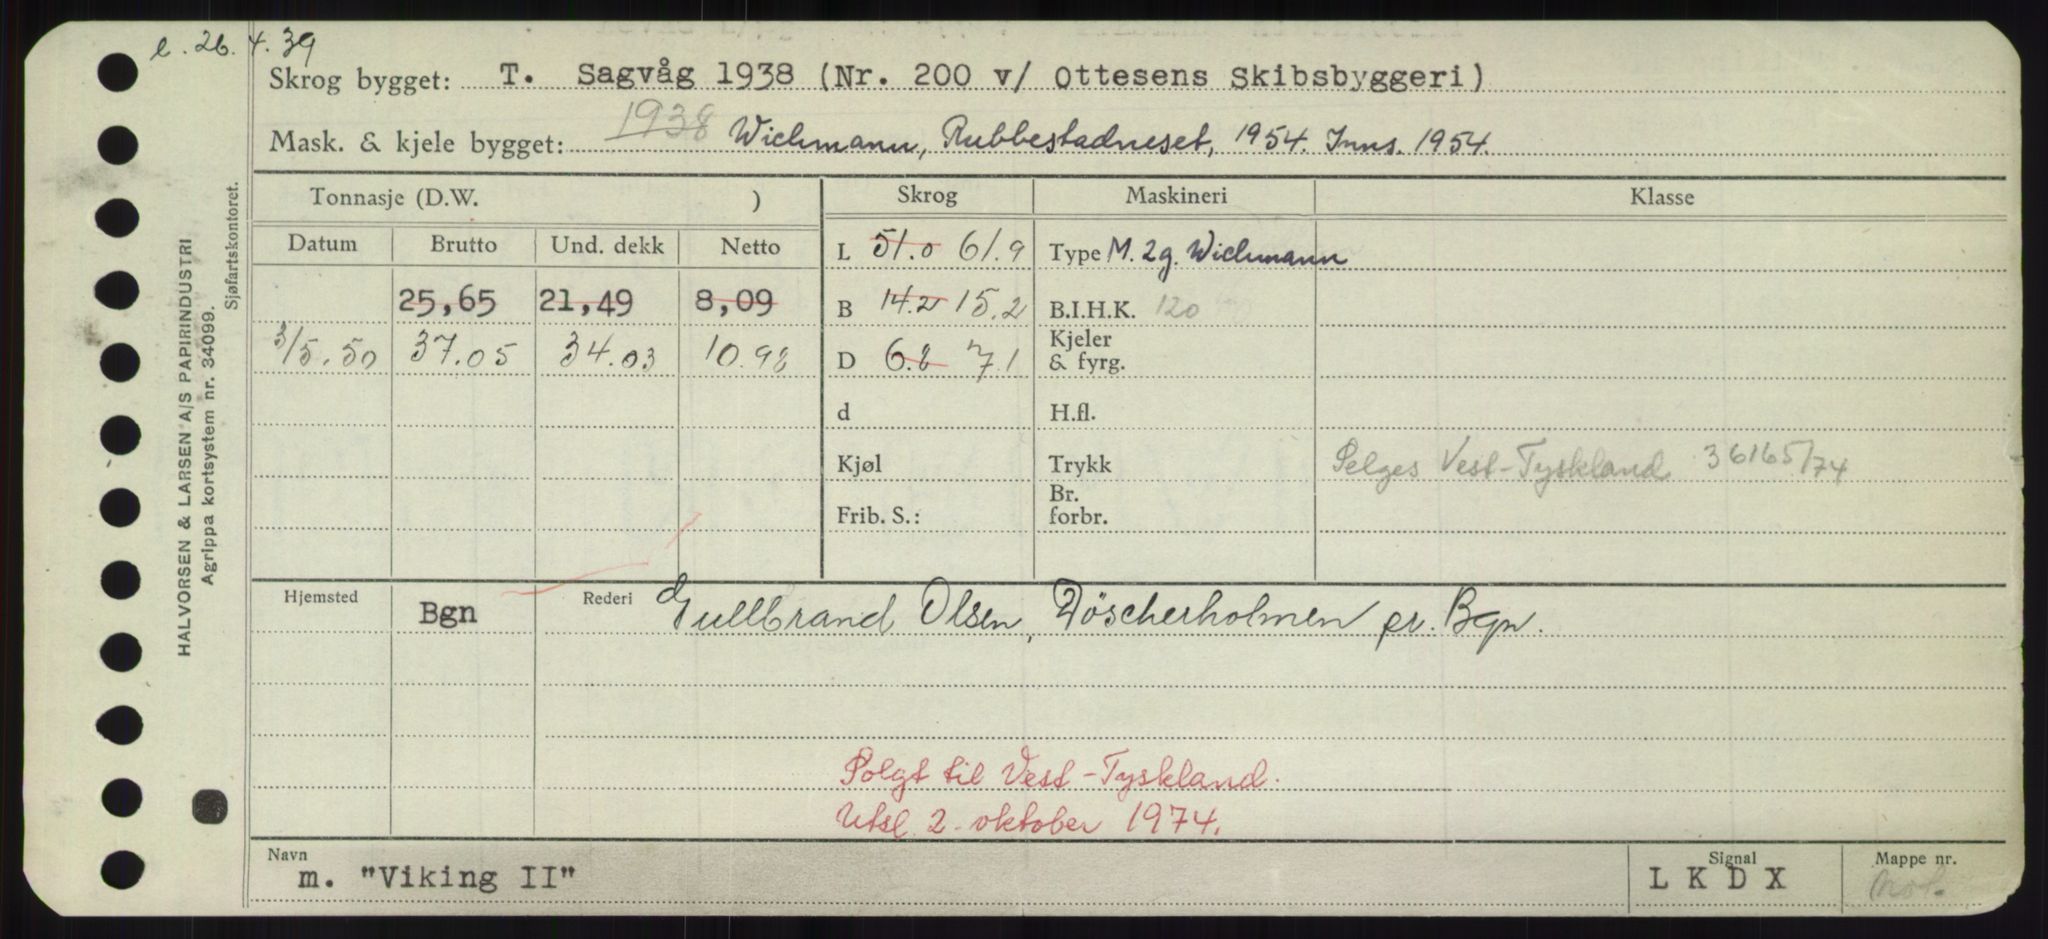 e. 26.4.39
Skrog bygget: T. Sagvåg 1938 (Nr. 200 v/ Ottesens Skibsbyggeri)
Mask. & kjele bygget: 1938 Wichmann, Rubbestadneset, 1954. Inns. 1954.
Tonnasje (D.W. ) Skrog Maskineri Klasse
Datum Brutto Und. dekk Netto L 51.0 61.9 Type M. 2g. Wichmann
25,65 21,49 8,09 B 14.2 15.2 B.I.H.K. 120
3/5.50 37.05 34.03 10.98 D 6.8 7.1 Kjeler & fyrg.
d H.fl.
Kjøl Trykk Selges Vest-Tyskland 36165/74
Frib. S.: Br. forbr.
Hjemsted Bgn Rederi Gullbrand Olsen, Döscherholmen pr. Bgn.
Solgt til Vest-Tyskland.
Utsl. 2. oktober 1974.
Navn m. "Viking II" Signal L K D X Mappe nr. Mot.
HALVORSEN & LARSEN A/S PAPIRINDUSTRI
Agrippa kortsystem nr. 34099.
Sjøfartskontoret.